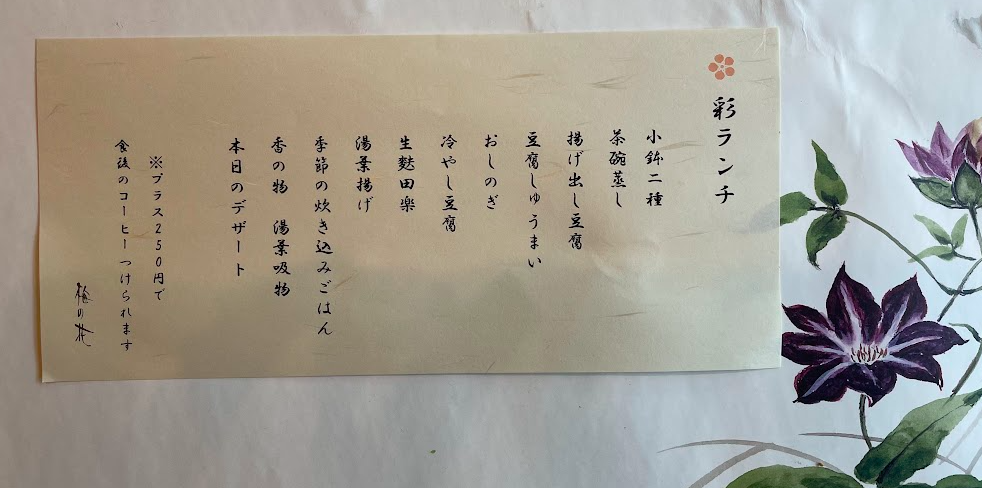 彩ランチ
小鉢二種
茶碗蒸し
揚げ出し豆腐
豆腐しゅうまい
おしのぎ
冷やし豆腐
生麩田楽
湯葉揚げ
季節の炊き込みごはん
香の物　湯葉吸物
本日のデザート
※プラス250円で
食後のコーヒーつけられます
梅の花